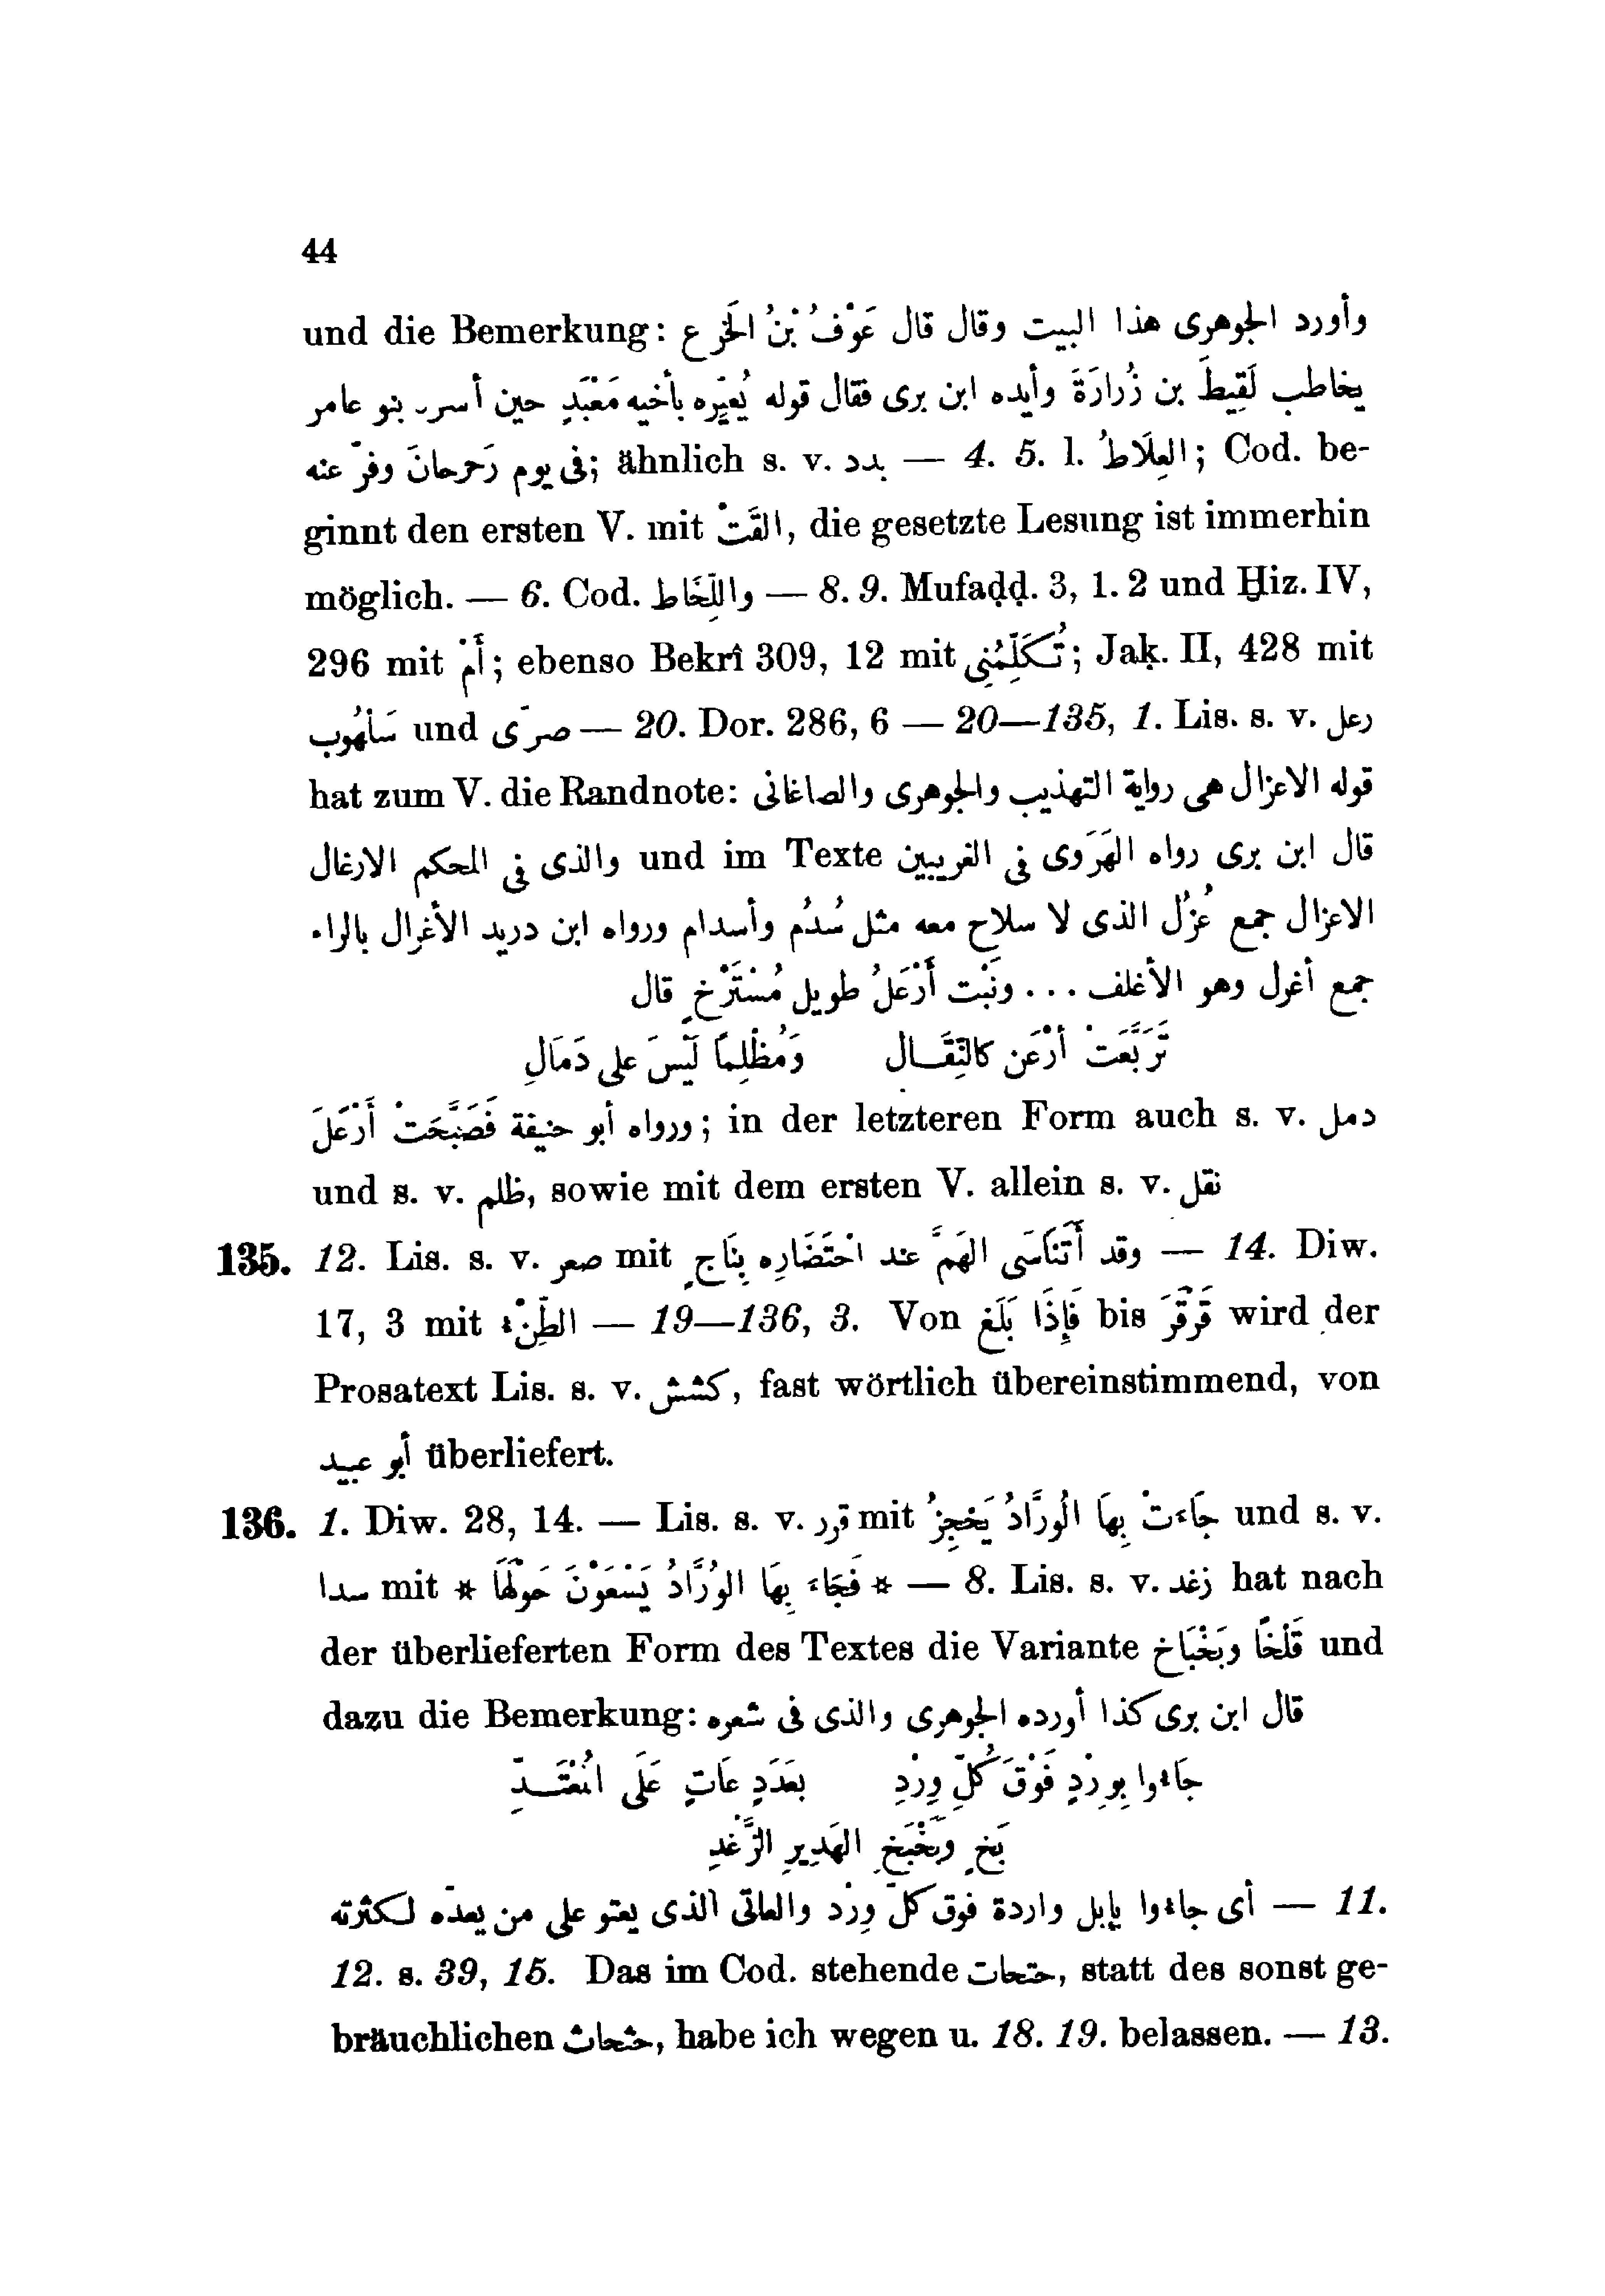 44
und die Bemerkung: وأورد الجوهرى هذا البيت وقال قال عَوْفُ بْنُ الخَرِع
يخاطب لَقِيطَ بن زُرارَةَ وأيده ابن برى فقال قوله يُعيّره بأخيه مَعْبَدٍ حين أسره بنو عامر
فى يوم رَحرحانَ وفرّ عنه; ähnlich s. v. بدد — 4. 5. l. العِلَاطُ; Cod. be-
ginnt den ersten V. mit القَتْ, die gesetzte Lesung ist immerhin
möglich. — 6. Cod. واللِّخَاط — 8. 9. Mufaḍḍ. 3, 1. 2 und Ḫiz. IV,
296 mit أَمْ; ebenso Bekrî 309, 12 mit تُكَلِّمُنِى; Jaḳ. II, 428 mit
سَلْهُوب und صرّى — 20. Dor. 286, 6 — 20—135, 1. Lis. s. v. رعل
hat zum V. die Randnote: قوله الاعزال هى رواية التهذيب والجوهرى والصاغانى
والذى فى المحكم الارغال und im Texte قال ابن برى رواه الهَرَوى فى الغريبين
الاعزال جمع عُزُل الذى لا سلاح معه مثل سُدُم وأسدام ورواه ابن دريد الأغرال بالراء
جمع أغرل وهو الأغلف ... ونَبْت أَرْعَلُ طويل مُسْتَرْخٍ قال
تَرَبَّعَتْ أرْعَن كالنِّقَال وَمُظْلِمًا لَيْسَ على دَمَالِ
ورواه أبو حنيفة فَصَبَّحَتْ أَرْعَلَ; in der letzteren Form auch s. v. دمل
und s. v. ظلم, sowie mit dem ersten V. allein s. v. نقل
135. 12. Lis. s. v. صعر mit وقد أَتَنَاسَى الهَمَّ عند احْتِضَارِه بِنَاجٍ — 14. Diw.
17, 3 mit الظِّنْء — 19—136, 3. Von فَإِذَا بَلَغ bis قَرْقَرَ wird der
Prosatext Lis. s. v. كشش, fast wörtlich übereinstimmend, von
أبو عبيد überliefert.
136. 1. Diw. 28, 14. — Lis. s. v. قرر mit جَاءتْ بِهَا الُورَّادُ يَحْجِزُ und s. v.
سدا mit * فَجَاءَ بِهَا الوُرَّادُ يَسْعَوْنَ حَوْلَهَا * — 8. Lis. s. v. زغد hat nach
der überlieferten Form des Textes die Variante قَلْخًا وبَخْبَاخ und
dazu die Bemerkung: قال ابن برى كذا أورده الجوهرى والذى فى شعره
جَاءوا بِوِرْدٍ فَوْقَ كُلِّ وِرْدِ بعَدَدٍ عَاتٍ عَلَى المُعْتَـدِّ
بَخٍ وبَخْبَخِ الهَدِيرِ الزَّغْدِ
أى جاءوا بإبل واردة فوق كلّ وِرْد والعاتى الذى يعتو على من يعدّه لكثرته — 11.
12. s. 39, 15. Das im Cod. stehende حتحات, statt des sonst ge-
bräuchlichen حثحاث, habe ich wegen u. 18. 19. belassen. — 13.